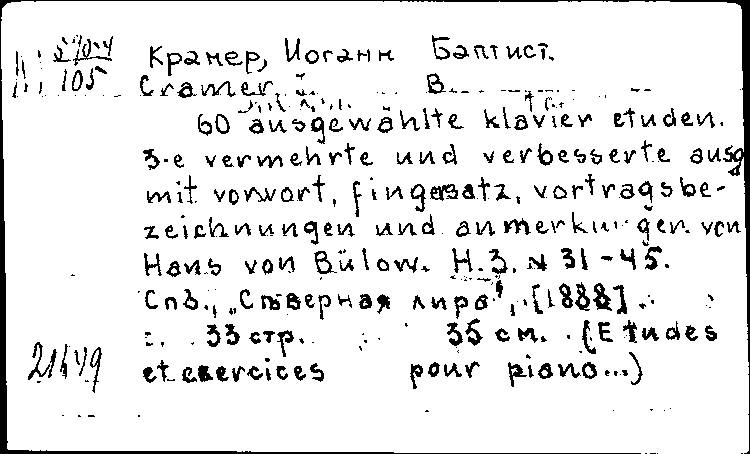 570-4 Крамер, Иоганн Баптист.
105 Cramer J. B.
60 ausgewählte klavier etuden.
3-е vermehrte und verbesserte ausg
mit vorwort, fingersatz, vortragsbe-
zeichnungen und anmerkungen von
Hans von Bülow. H.3. № 31-45.
Спб., „Сѣверная лира", [1888].
33 стр. 35 см. (Etudes
et exercices pour piano...)